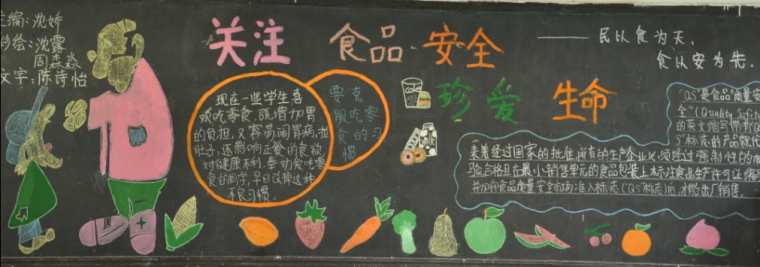 主编:沈婷
抄绘:沈露
周淼淼
文字:陈诗怡
关注 食品·安全
——民以食为天,
食以安为先.
珍爱 生命
现在一些学生喜
欢吃零食,既增加胃
的负担,又容易闹胃病,拉
肚子,还影响正餐的食欲
对健康不利,奉劝爱吃零
食的同学,早日改掉这种
不良习惯。
要克
服吃零
食的习
惯
"QS"是食品质量安
全"(Quality Safety)
的英文缩写,带有"Q
S"标志的产品就代
表着经过国家的批准,所有的生产企业必须经过强制性的
验合格且在最小销售单元的食品包装上标注食品生产许可证编号
并加印食品质量安全市场准入标志("QS"标志)后才能出厂销售.